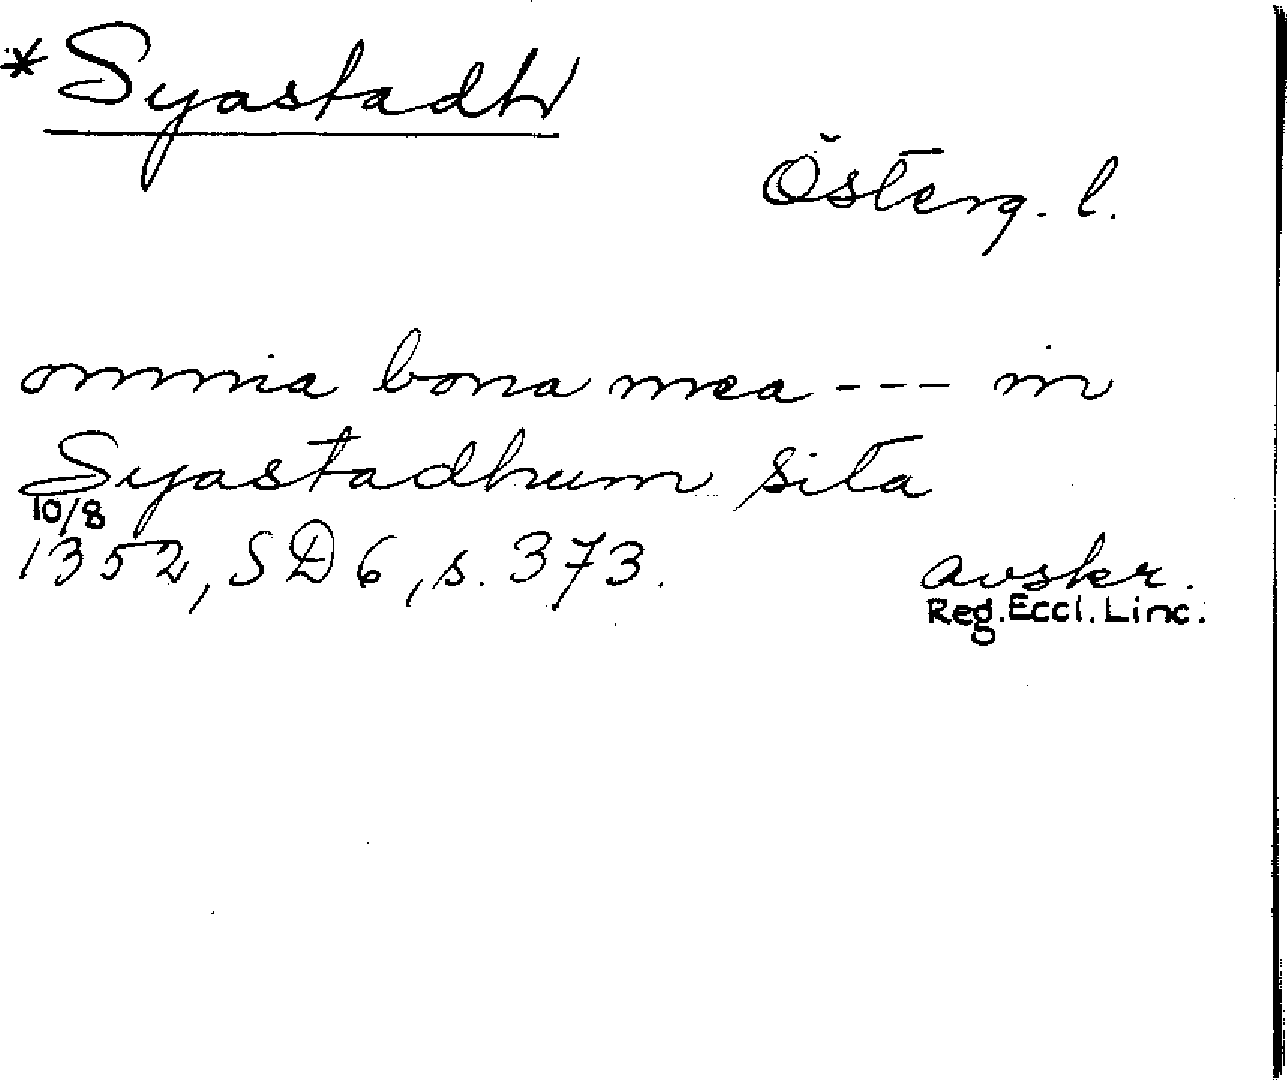 *Syastadh
Österg. l.
omnia bona mea --- in
Syastadhum sita
10/8
1352, SD 6, s. 373.
avskr.
Reg. Eccl. Linc.